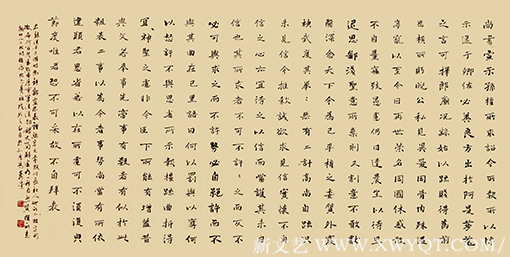 尚書宣示孫權所求詔令所報所以博
示逮于卿佐必冀良方出於阿是芻蕘
之言可擇郎廟況繇始以疏賤得為前
恩橫所盱睨公私見異愛同骨肉殊遇厚
寵以至今日再世榮名同國休慼敢
不自量竊致愚慮仍日達晨坐以待旦
退思鄙淺聖意所棄則又割意不敢獻
聞深念天下今為已平權之委質外震
神武度其拳拳無有二計高尚自疏況
未見信今推款誠欲求見信實懷不自
信之心亦宜待之以信而當護其未自
信也其所求者不可不許許之而反不
必可與求之而不許勢必自絕許而不
與其曲在己里語曰何以罰與以奪何
以怒許不與思省所示報權疏曲折得
宜宜神聖之慮非今臣下所能有增益昔
與文若奉事先帝事有數者有似於此
粗表二事以為今者事勢尚當有所依
違願君思省若以在所慮可不須復貌
節度唯君恐不可采故不自拜表
新文艺 www.XWYQT.com